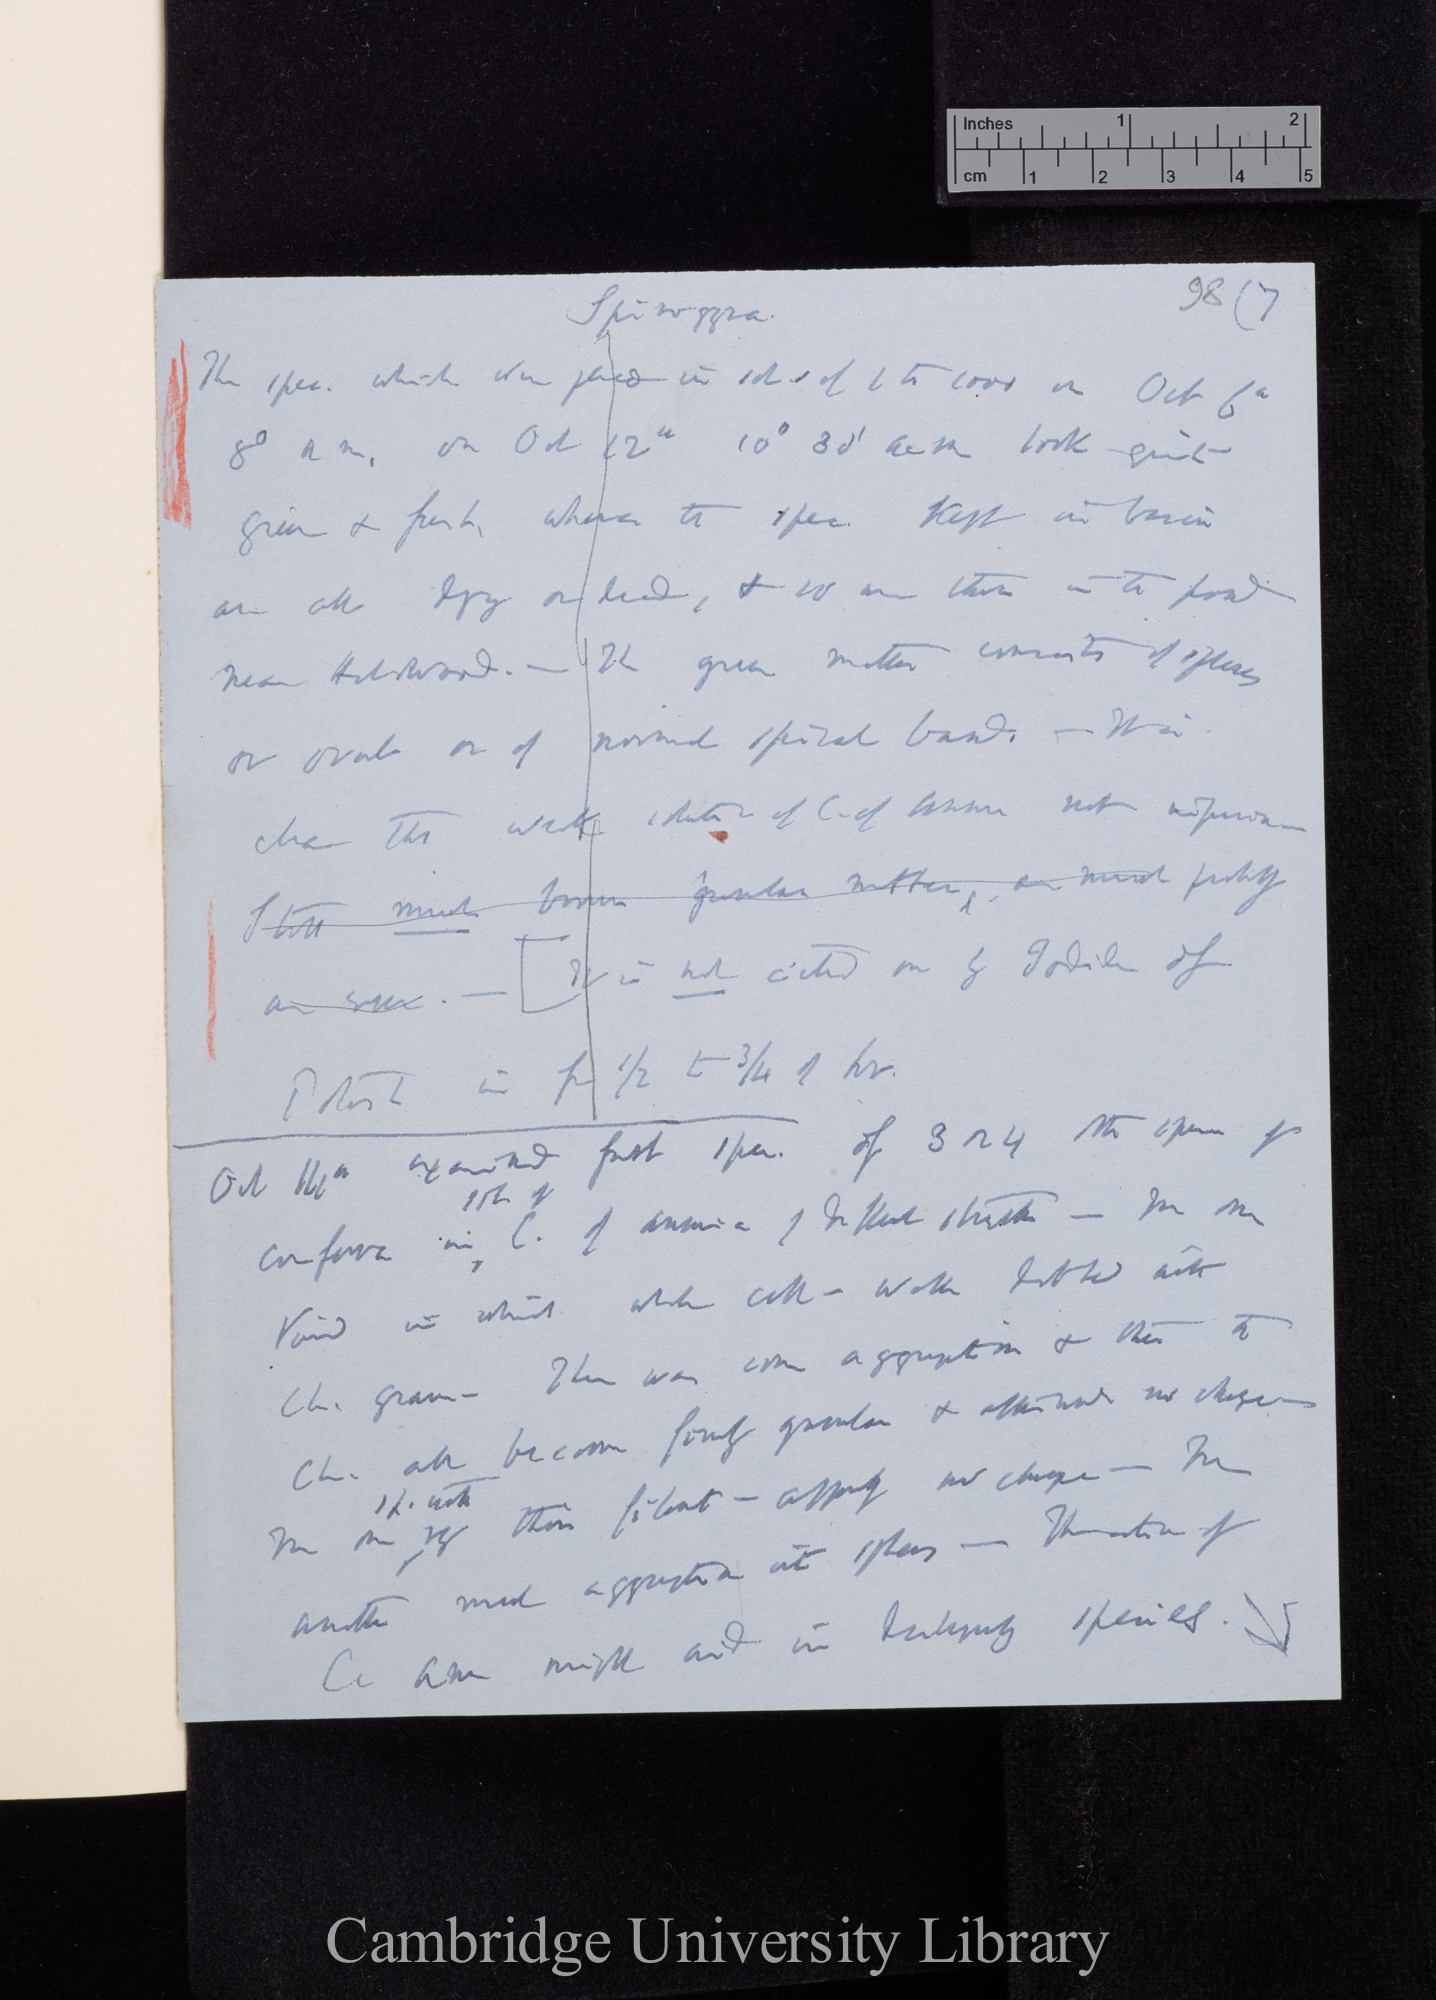 Inches 1 2
cm 1 2 3 4 5
98 (7
Spirogyra.
The spec. which were placed in sol. of 1 to 1000 on Oct 6th
8° a m, on Oct 12th 10° 30' a m look quite
green & fresh, whereas the spec. kept in basin
are all dying or dead, & so are those in the pond
near Holwood. — The green matter consists of spheres
or ovals or of normal spiral bands — It is
clear that weak solution of C. of Ammon not injurious
Still much brown granular matter, are much
— [It is not acted on by Iodide of
Potash in for 1/2 to 3/4 of hr.
Oct 14th examined first spec. of 3 or 4 other species of
conferva in sol. of C. of ammonia of different strengths — In one
kind in which whole cell-walls dotted with
Ch. grains There was some aggregation & then the
Ch. all become finely granular & afterwards no change
In one sp. with very thin filament — apparently no change — In
another much aggregation into spheres — The action of
C. Am might aid in distinguishing species.
Cambridge University Library